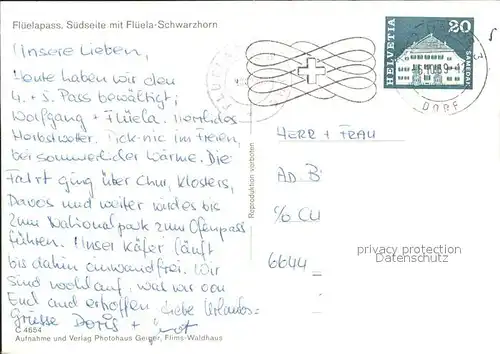 Flüelapass. Südseite mit Flüela-Schwarzhorn
Unsere Lieben,
Heute haben wir den
4. + 5. Pass bewältigt;
Wolfgang + Flüela. Herrliches
Herbstwetter. Pick-nic im Freien,
bei sommerlicher Wärme. Die
Fahrt ging über Chur, Klosters,
Davos und weiter wird es bis
zum Nationalpark zum Ofenpass
führen. Unser Käfer läuft
bis dahin einwandfrei. Wir
sind wohlauf, was wir von
Euch auch erhoffen. Liebe Urlaubs-
Grüsse Doris +
C 4654
Aufnahme und Verlag Photohaus Geiger, Flims-Waldhaus
Reproduktion verboten
HELVETIA
20
SAMEDAN
DORF
HERR + FRAU
AD. B
c/o CU
6644
privacy protection
Datenschutz